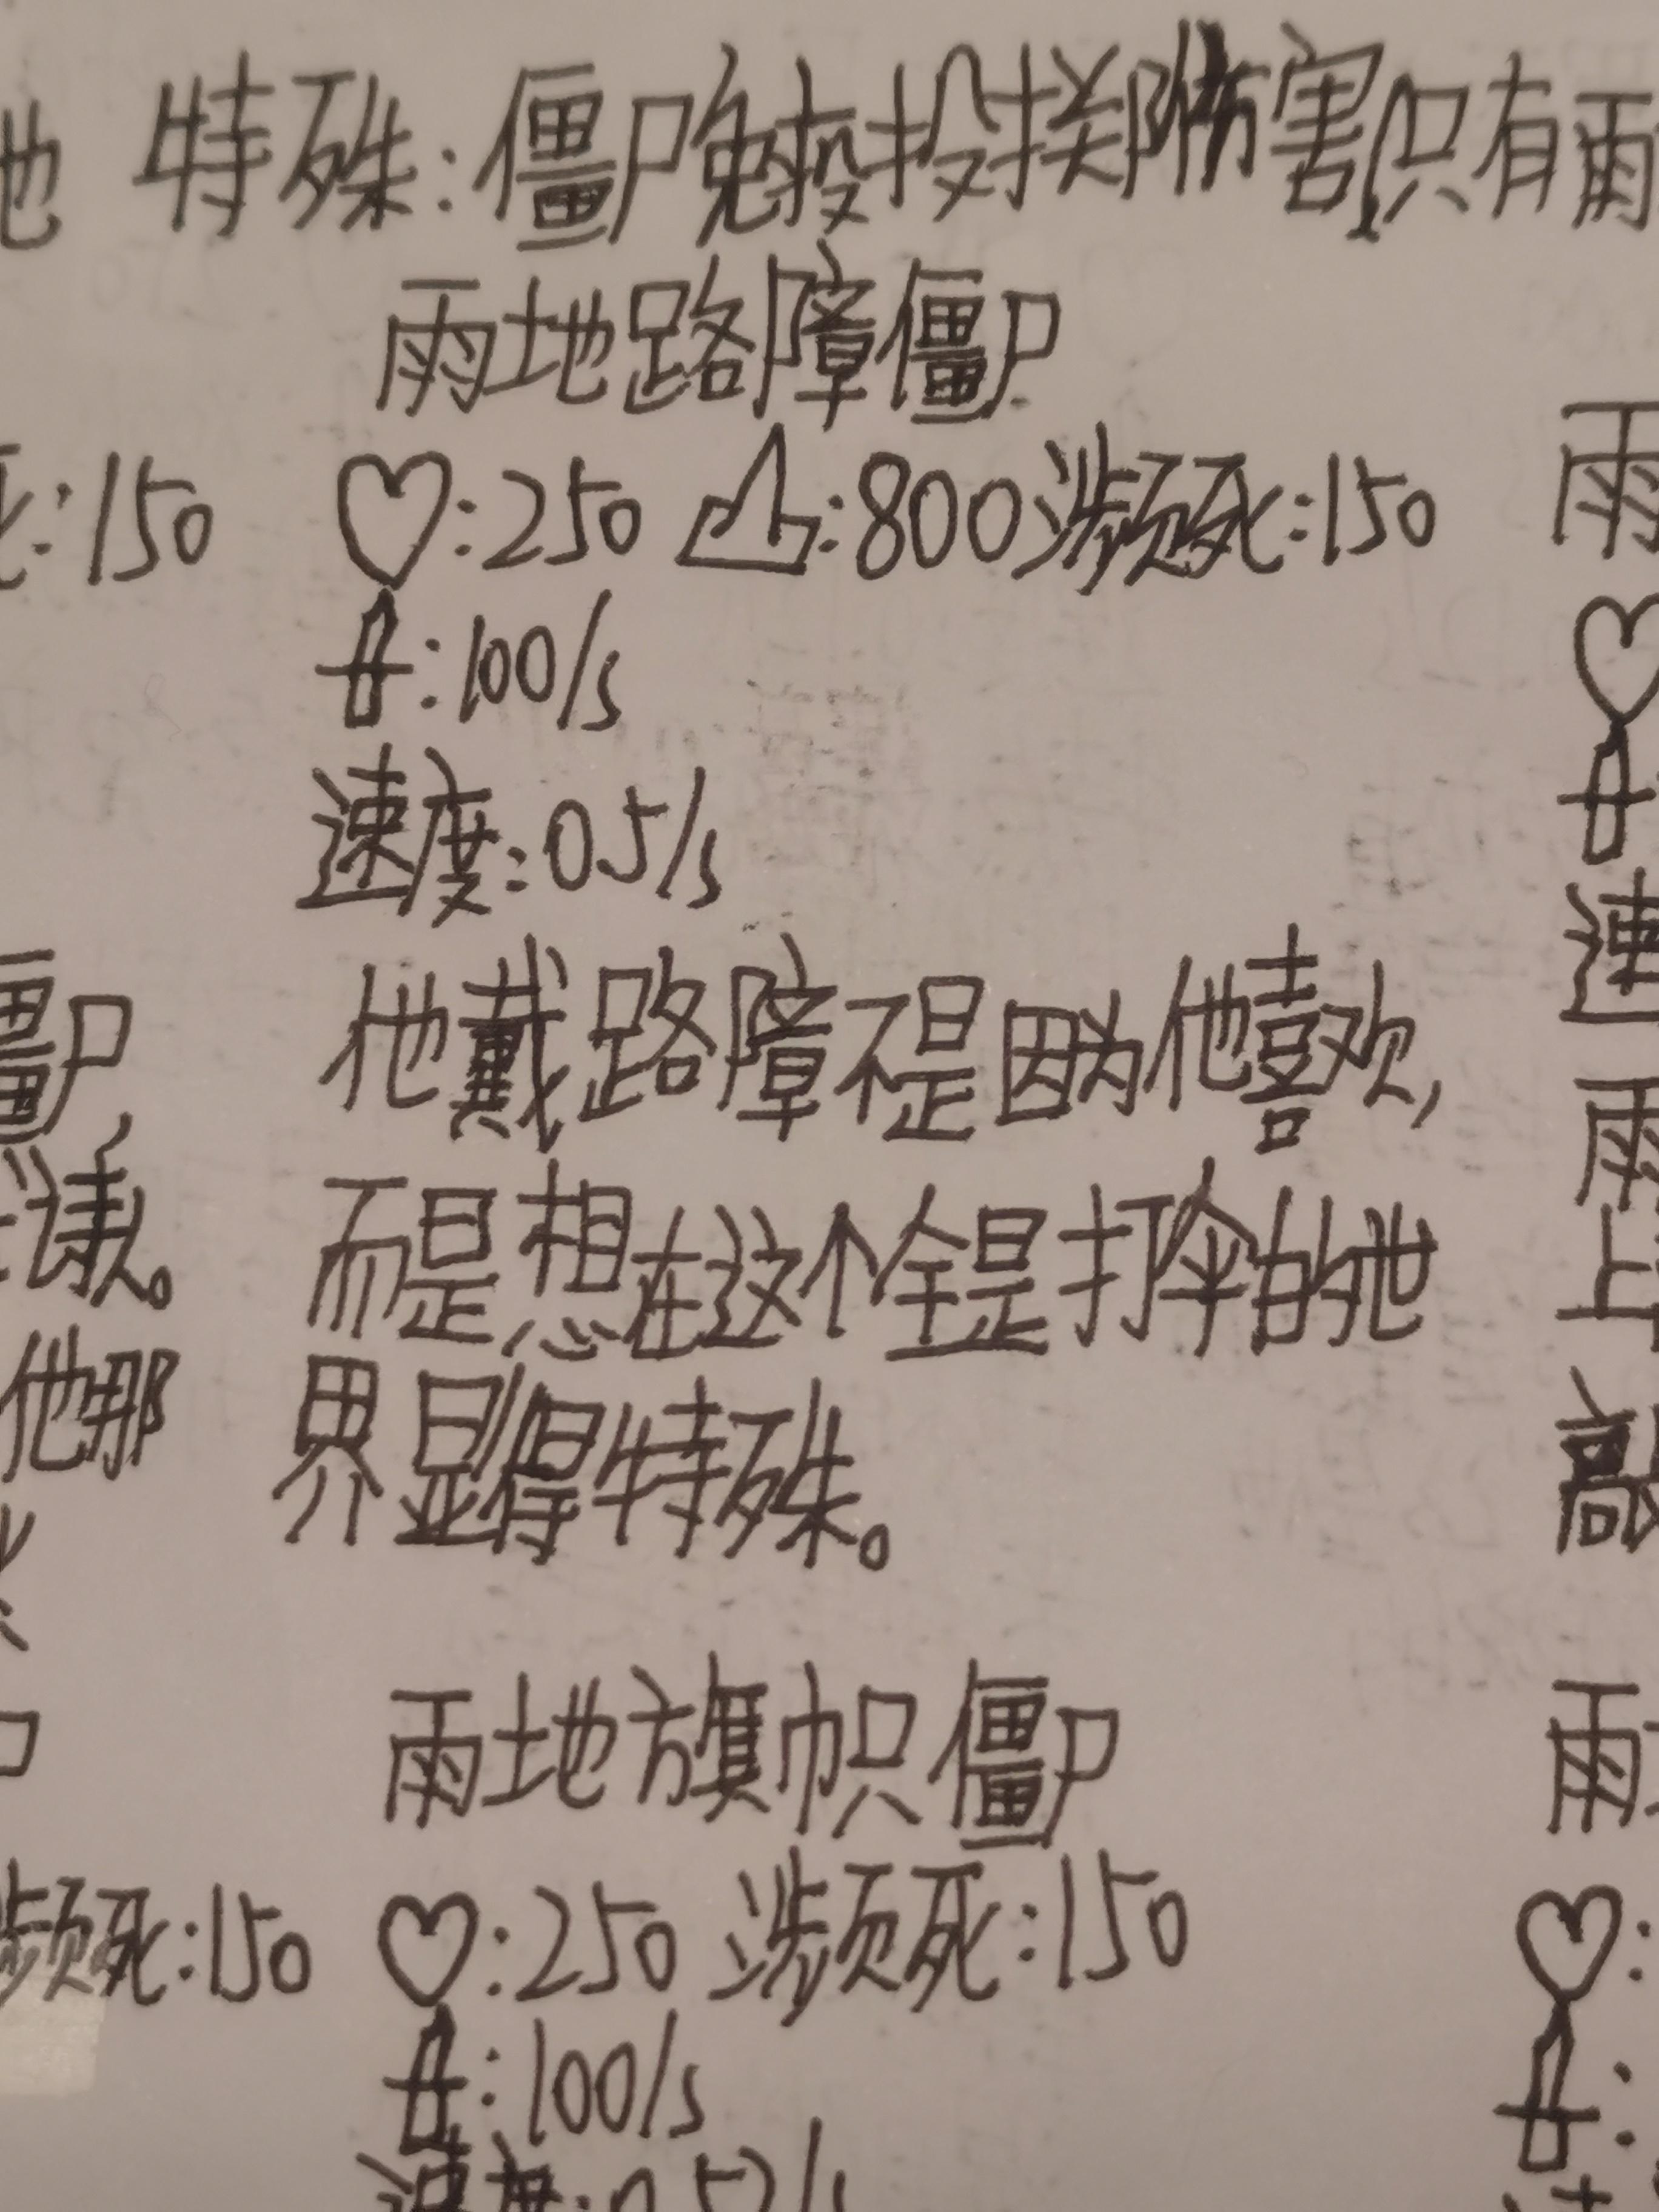 地 特殊:僵尸免疫投掷伤害,只有雨
雨地路障僵尸
死:150 ♡:250 :800 濒死:150 雨
:100/s
速度:0.5/s 速
僵尸, 他戴路障不是因为他喜欢, 雨
议。 而是想在这个全是打伞的地 上
他那 界显得特殊。 高
雨地旗帜僵尸 雨
濒死:150 ♡:250 濒死:150 ♡:
:100/s :
速度:0.52/s